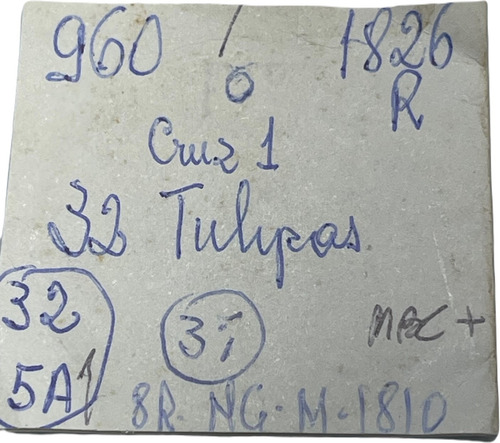 960 / 1826
O R
Cruz 1
32 Tulipas
32 37 MBC +
5A1 8R-NG-M-1810